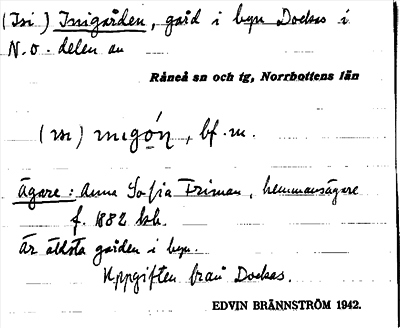 (Isi) Inigården, gård i byn Dockas i
N.o. delen av
Råneå sn och tg, Norrbottens län
bf. m.
Ägare: Anna Sofia Friman, hemmansägare
f. 1882 bh.
Är äldsta gården i byn.
Uppgiften från Dockas.
EDVIN BRÄNNSTRÖM 1942.